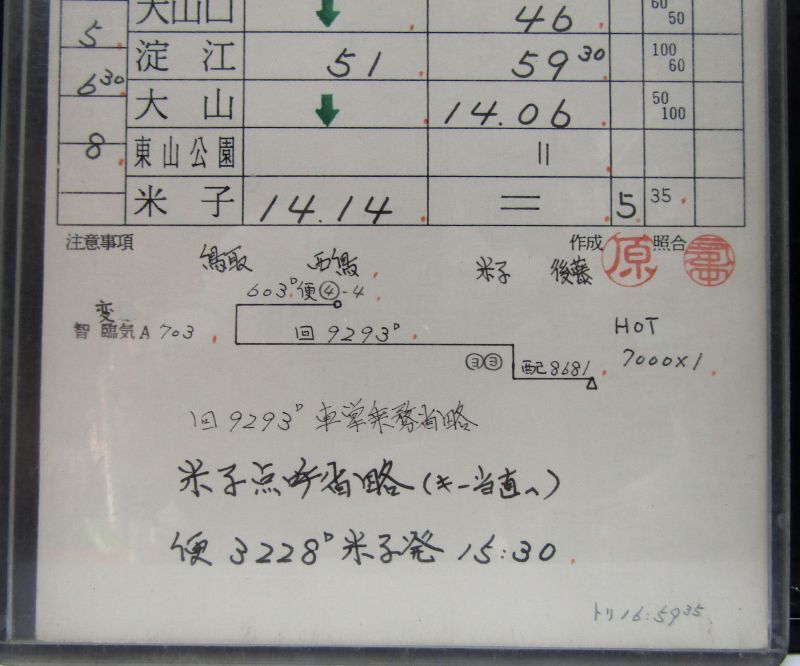 大山口 ↓ 46 60 50
5
淀江 51 59 30 100 60
6 30
大山 ↓ 14.06 50 100
8
東山公園 =
米子 14.14 = 5 35
注意事項 作成 原 照合
鳥取 西鳥 米子 後藤
603D便④-4
変
智 臨気A 703 回9293D HOT
7000×1
③③ 配8681
回9293D 車掌乗務省略
米子点呼省略(キー当直へ)
便 3228D 米子発 15:30
トリ16:59 35